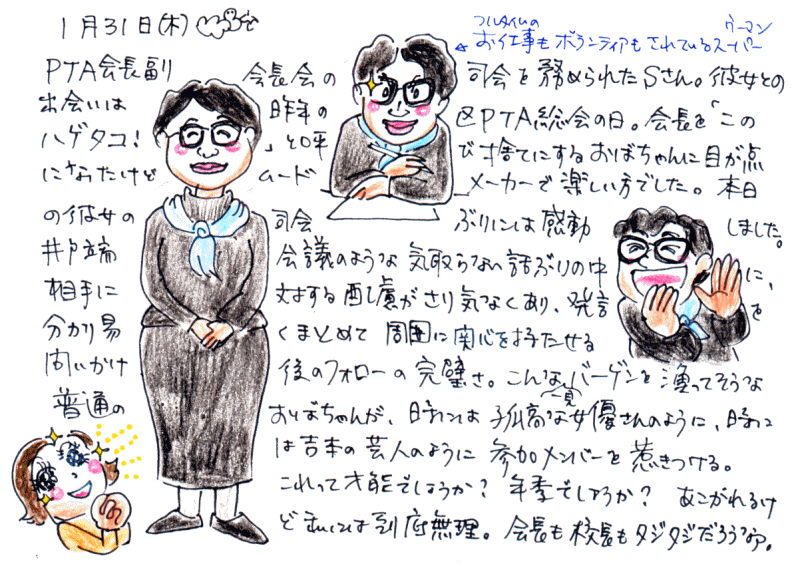 1月31日(木)
フルタイムの
お仕事もボランティアもされているスーパーウーマン
PTA会長副会長会の司会を務められたSさん。彼女との
出会いは昨年の区PTA総会の日。会長を「この
ハゲタコ!」と呼び捨てにするおばちゃんに目が点
になったけどムードメーカーで楽しい方でした。本日
の彼女の司会ぶりには感動しました。
井戸端会議のような気取らない話ぶりの中に、
相手に対する配慮がさり気なくあり、発言を
分かり易くまとめて周囲に関心を持たせる
問いかけ後のフォローの完璧さ。こんなバーゲンを漁ってそうな
普通のおばちゃんが、時には孤高な一見女優さんのように、時に
は吉本の芸人のように参加メンバーを惹きつける。
これって才能でしょうか?年季でしょうか?あこがれるけ
ど私には到底無理。会長も校長もタジタジだろうなア。